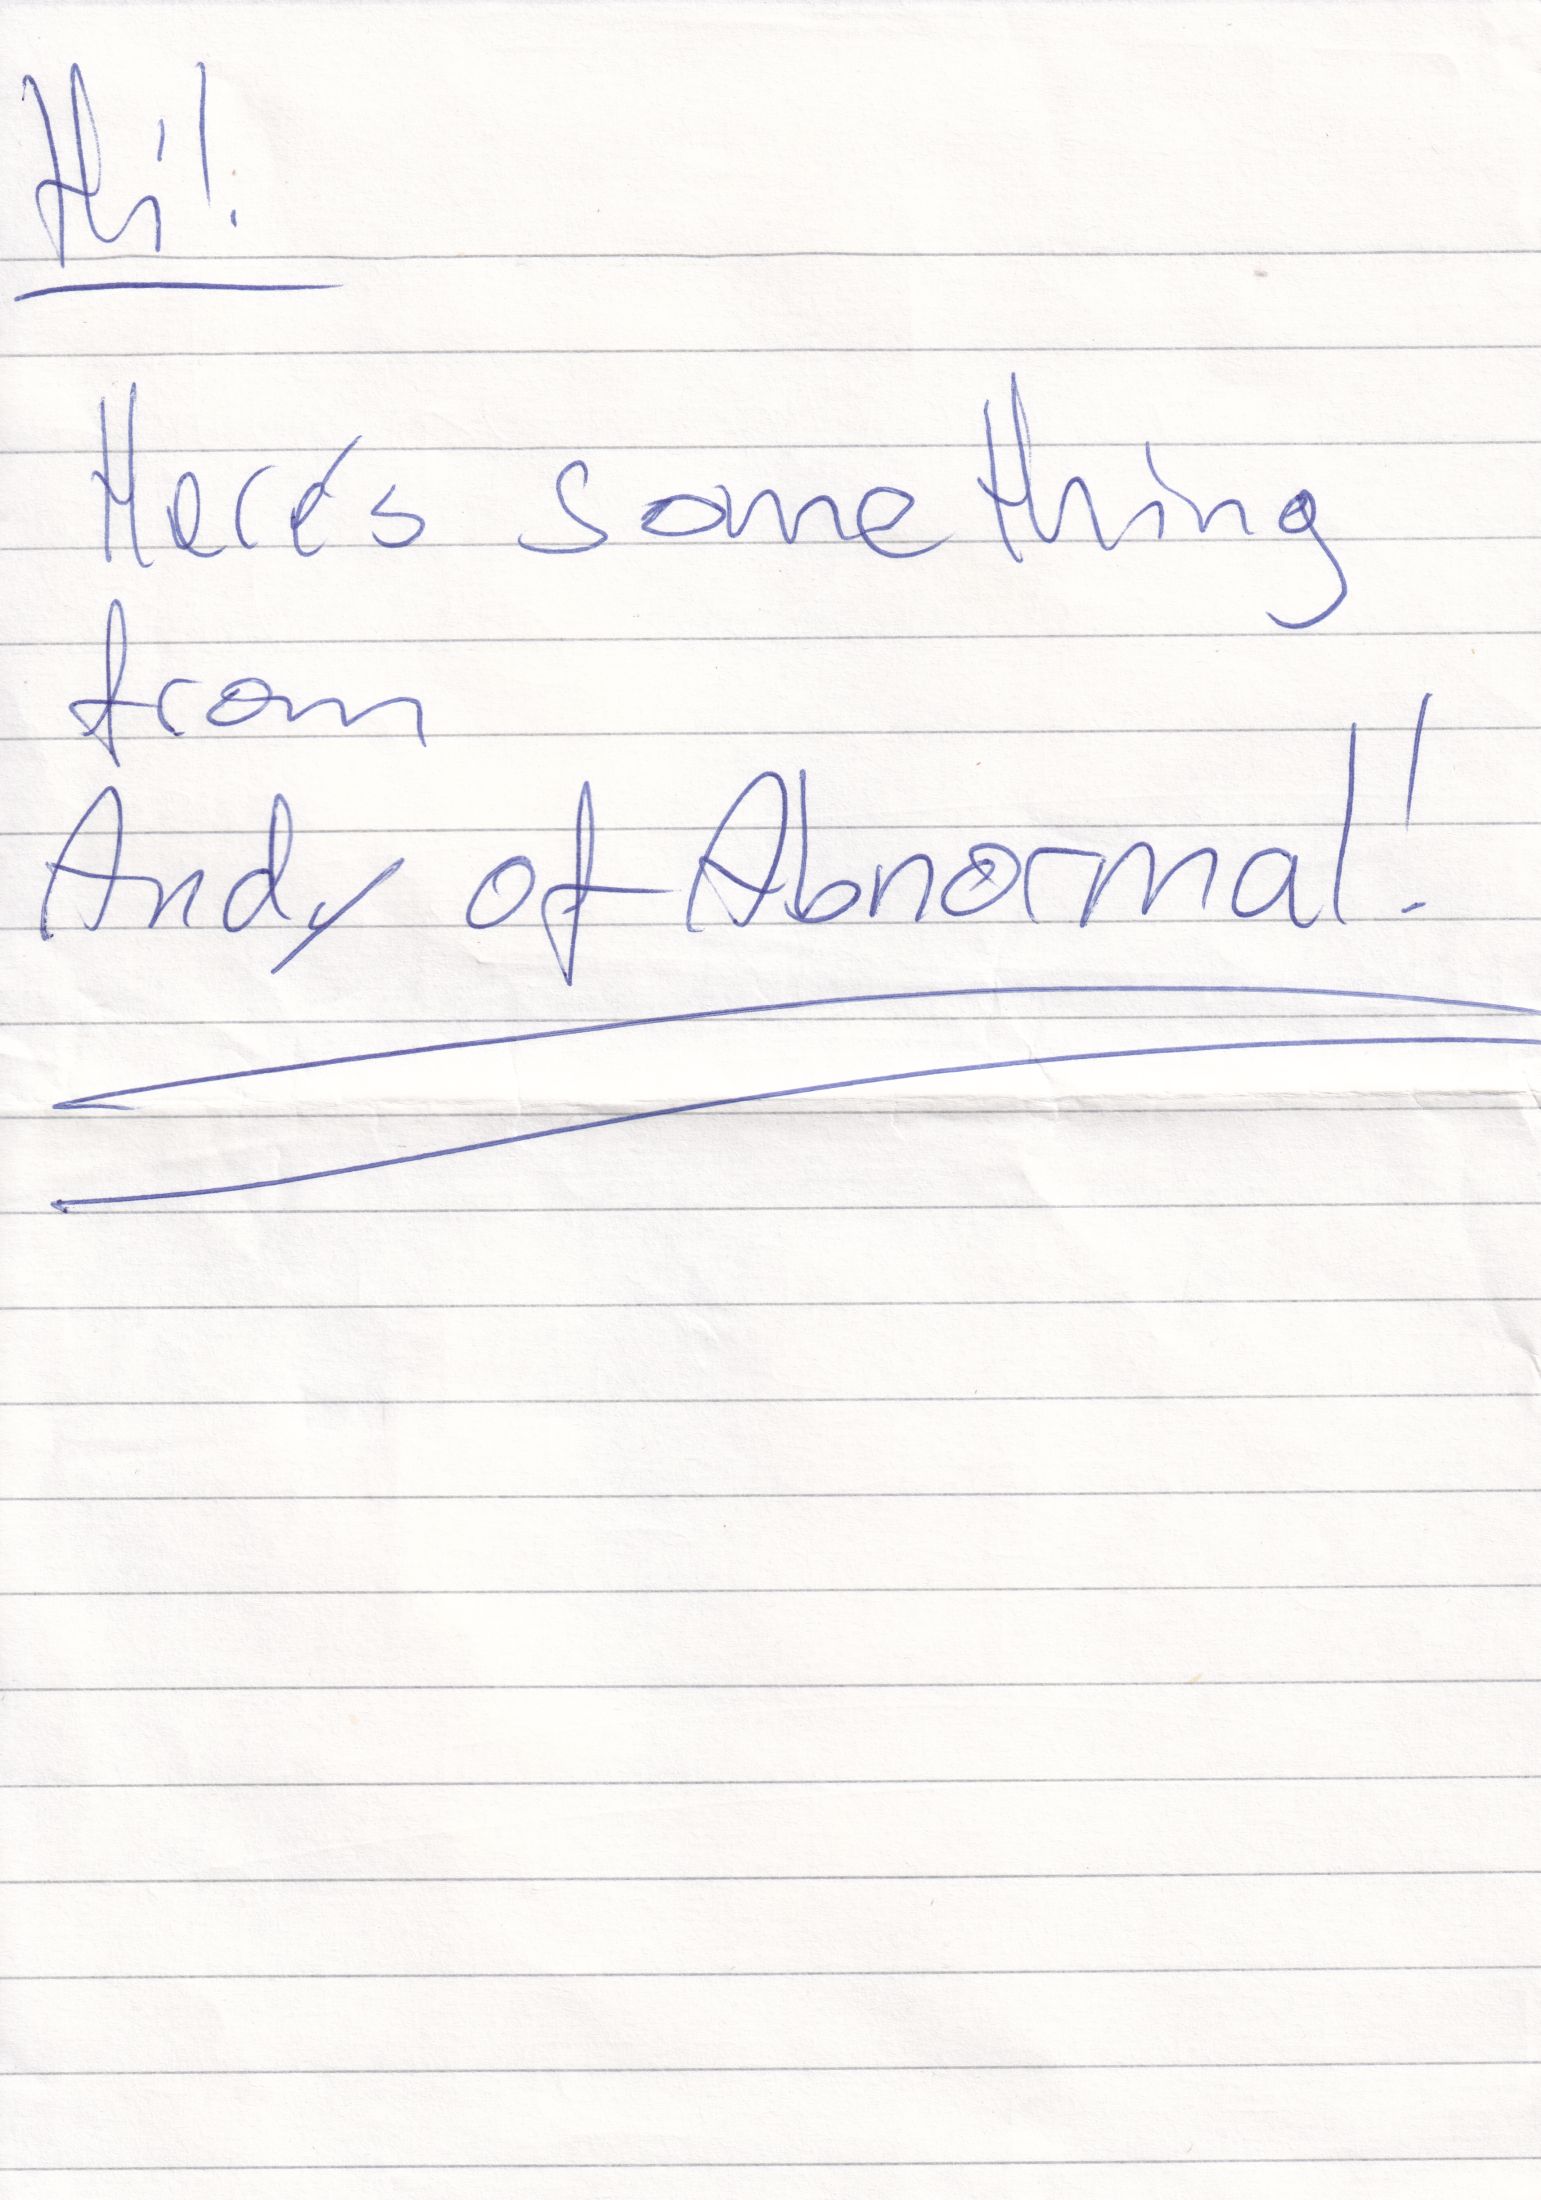 Hi!
Here's something
from
Andy of Abnormal!